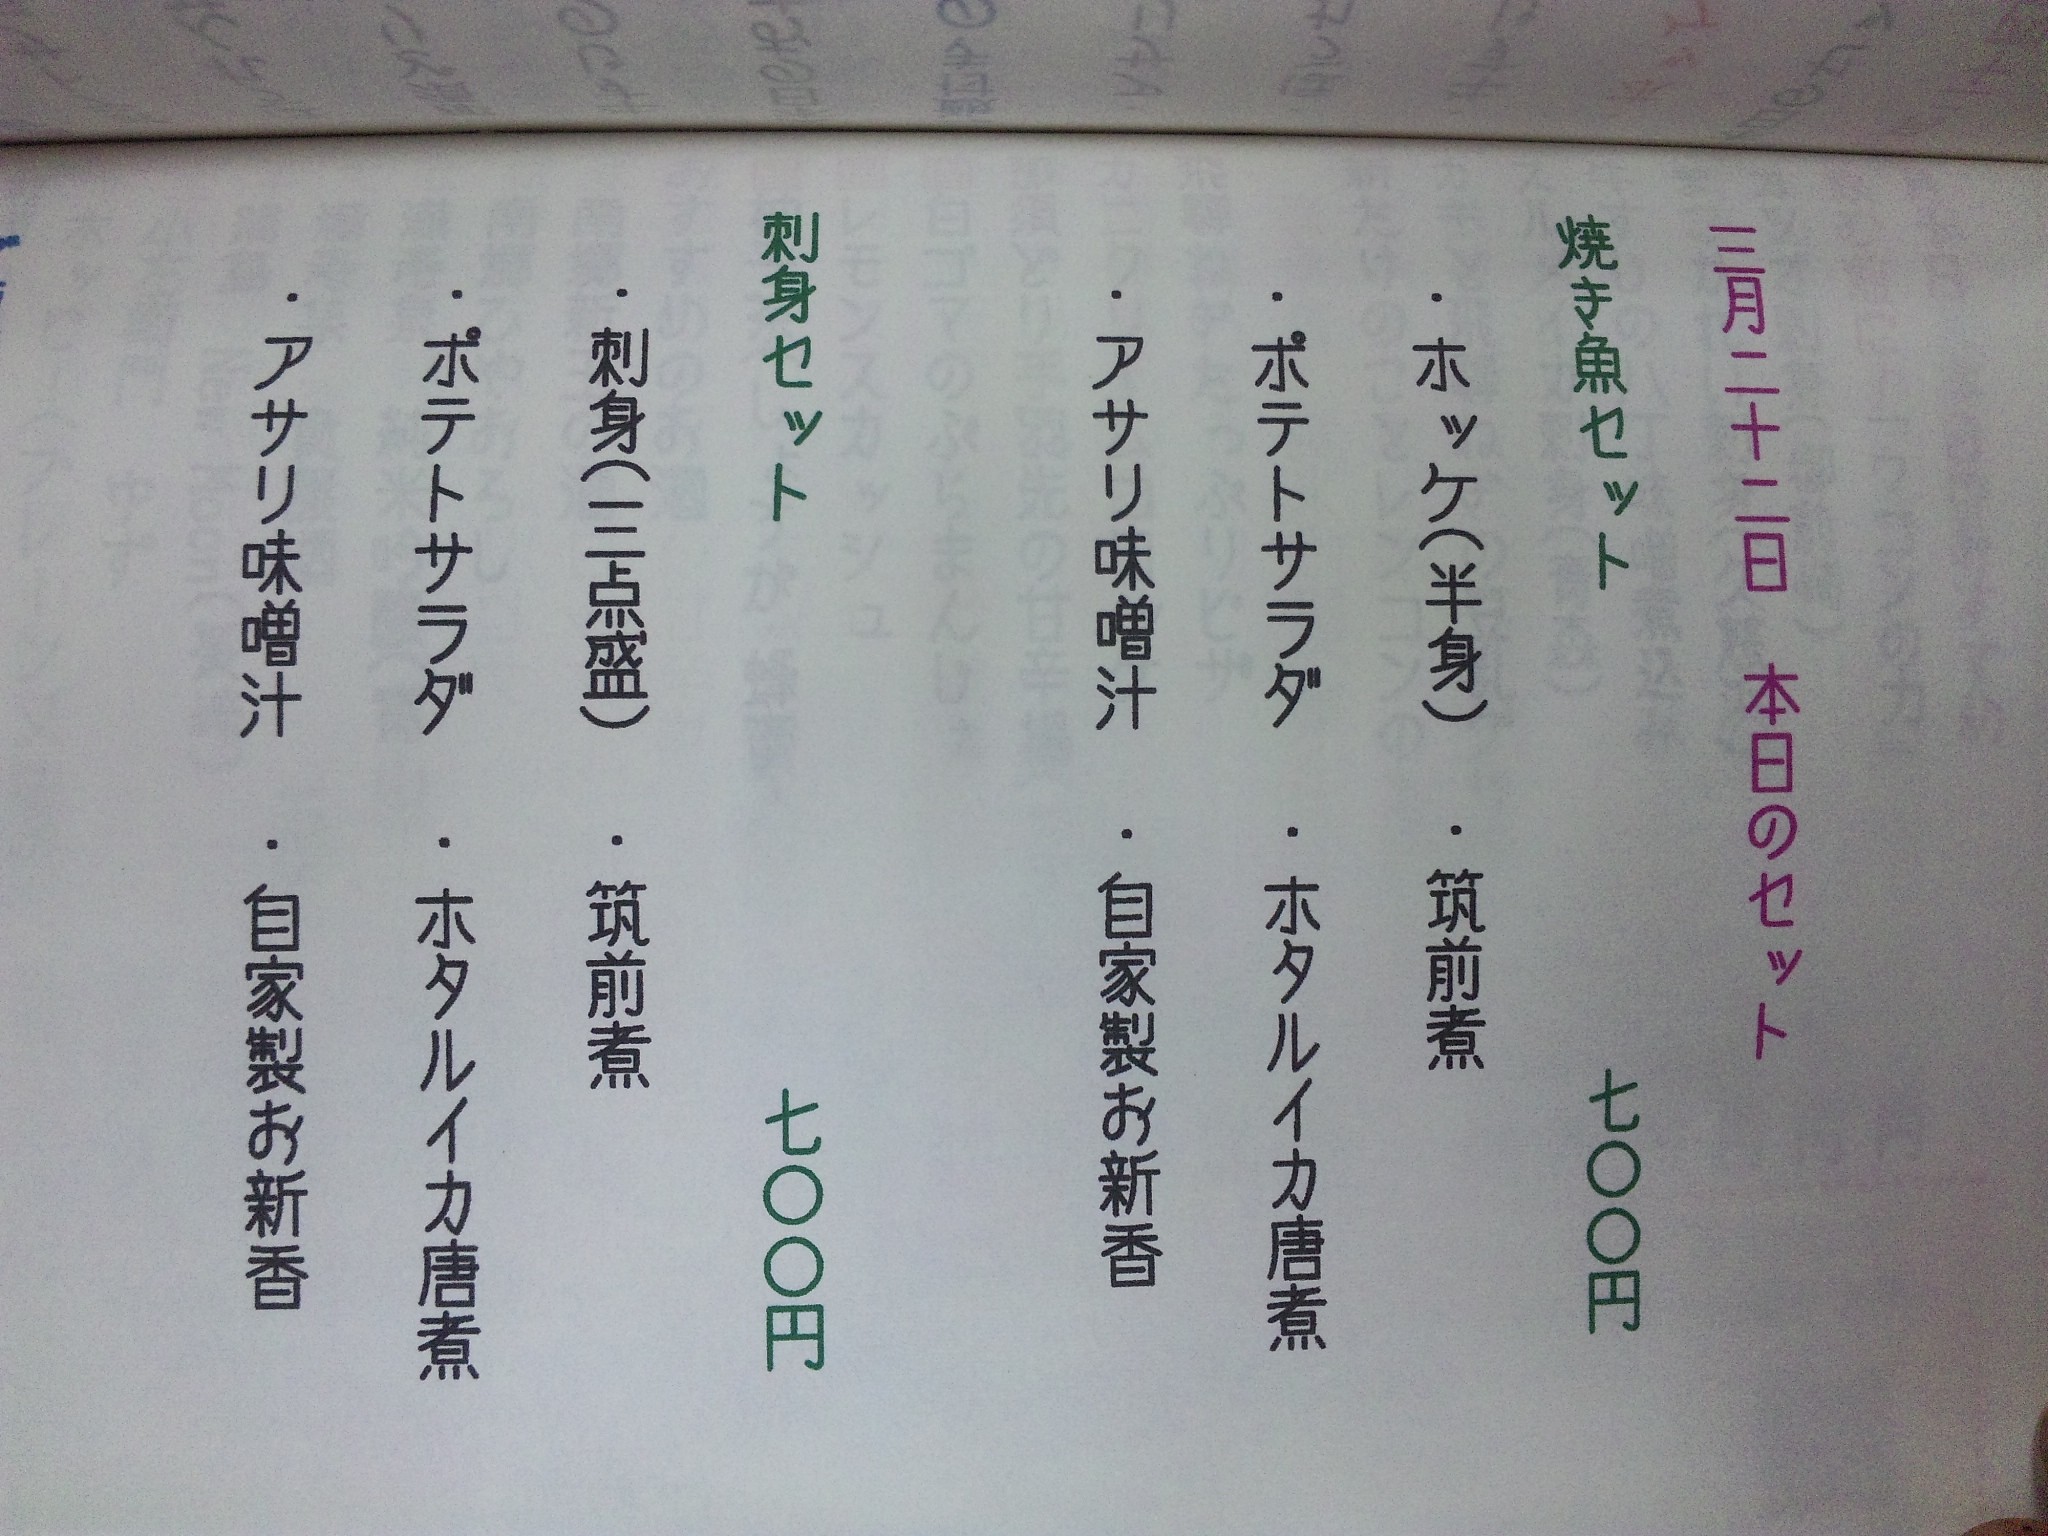 三月二十二日　本日のセット
焼き魚セット　七〇〇円
・ホッケ(半身)　・筑前煮
・ポテトサラダ　・ホタルイカ唐煮
・アサリ味噌汁　・自家製お新香
刺身セット　七〇〇円
・刺身(三点盛)　・筑前煮
・ポテトサラダ　・ホタルイカ唐煮
・アサリ味噌汁　・自家製お新香